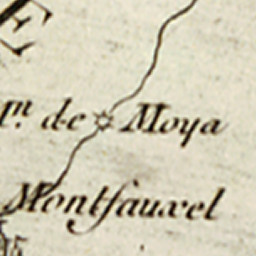 E
de Moya
Montſauxel